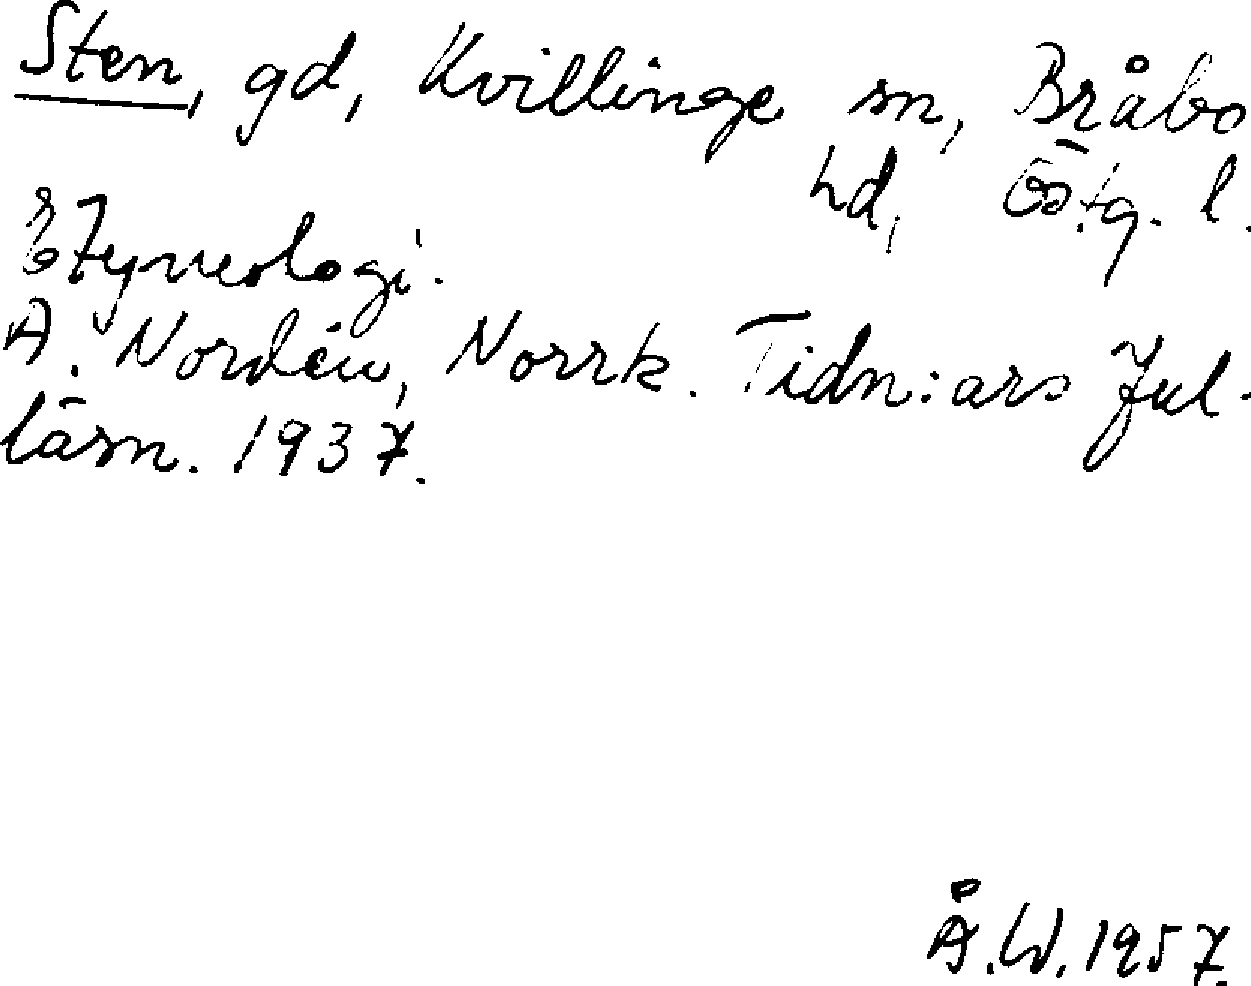 Sten, gd, Kvillinge sn, Bråbo
hd, Östg. l.
Etymologi.
A. Nordén, Norrk. Tidn:ars Jul-
läsn. 1937.
Å.W. 1957.